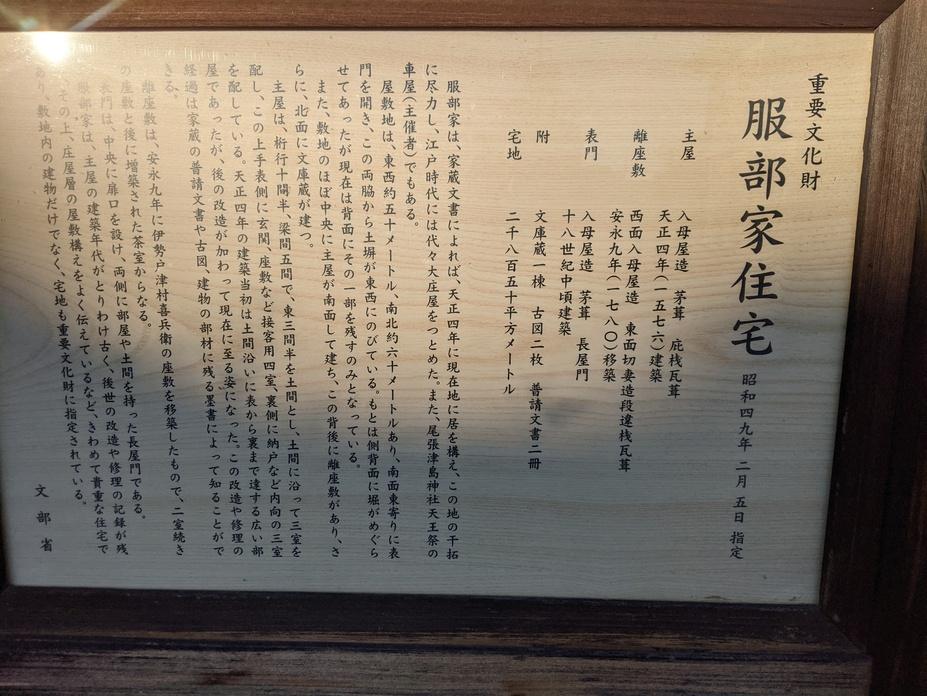 重要文化財
服部家住宅 昭和四九年 二月 五日 指定
主屋 入母屋造 茅葺 庇桟瓦葺
天正四年(一五七六)建築
離座敷 西面入母屋造 東面切妻造段違桟瓦葺
安永九年(一七八〇)移築
表門 入母屋造 茅葺 長屋門
十八世紀中頃建築
附 文庫蔵一棟 古図二枚 普請文書二冊
宅地 二千八百五十平方メートル
服部家は、家蔵文書によれば、天正四年に現在地に居を構え、この地の干拓
に尽力し、江戸時代には代々大庄屋をつとめた。また、尾張津島神社天王祭の
車屋(主催者)でもある。
屋敷地は、東西約五十メートル、南北約六十メートルあり、南面東寄りに表
門を開き、この両脇から土塀が東西にのびている。もとは側背面に堀がめぐら
せてあったが現在は背面にその一部を残すのみとなっている。
また、敷地のほぼ中央に主屋が南面して建ち、この背後に離座敷があり、さ
らに、北面に文庫蔵が建つ。
主屋は、桁行十間半、梁間五間で、東三間半を土間とし、土間に沿って三室を
配し、この上手表側に玄関、座敷など接客用四室、裏側に納戸など内向の三室
を配している。天正四年の建築当初は土間沿いに表から裏まで達する広い部
屋であったが、後の改造が加わって現在に至る姿になった。この改造や修理の
経過は家蔵の普請文書や古図、建物の部材に残る墨書によって知ることがで
きる。
離座敷は、安永九年に伊勢戸津村喜兵衛の座敷を移築したもので、二室続き
の座敷と後に増築された茶室からなる。
表門は、中央に扉口を設け、両側に部屋や土間を持った長屋門である。
服部家は、主屋の建築年代がとりわけ古く、後世の改造や修理の記録が残
その上、庄屋層の屋敷構えをよく伝えているなど、きわめて貴重な住宅で
あり、敷地内の建物だけでなく、宅地も重要文化財に指定されている。
文部省